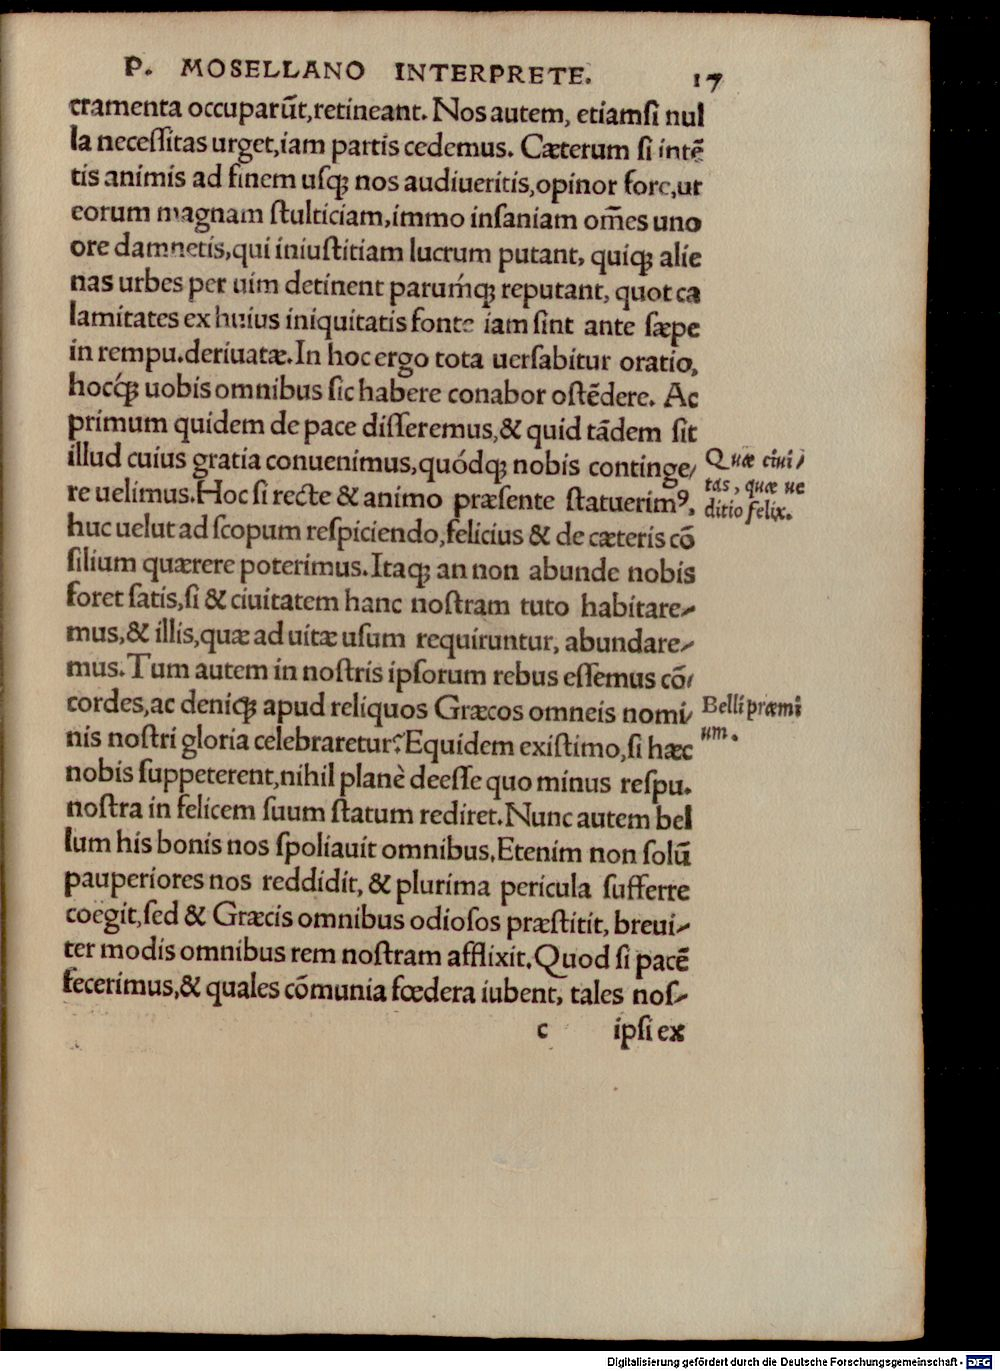 P. MOSELLANO INTERPRETE. 17
cramenta occuparūt,retineant. Nos autem, etiamſi nul
la neceſſitas urget,iam partis cedemus. Cæterum ſi intē
tis animis ad finem uſq; nos audiueritis,opinor fore,ut
eorum magnam ſtulticiam,immo inſaniam om̃es uno
ore damnetis,qui iniuſtitiam lucrum putant, quiq; alie
nas urbes per uim detinent parumq́; reputant, quot ca
lamitates ex huius iniquitatis fonte iam ſint ante ſæpe
in rempu.deriuatæ.In hoc ergo tota uerſabitur oratio,
hocq́; uobis omnibus ſic habere conabor oſtēdere. Ac
primum quidem de pace diſſeremus,& quid tādem ſit
illud cuius gratia conuenimus,quódq; nobis continge/
re uelimus.Hoc ſi recte & animo præſente ſtatuerimꝰ,
huc uelut ad ſcopum reſpiciendo,felicius & de cæteris cō
ſilium quærere poterimus.Itaq; an non abunde nobis
foret ſatis,ſi & ciuitatem hanc noſtram tuto habitare/
mus,& illis,quæ ad uitæ uſum requiruntur, abundare/
mus.Tum autem in noſtris ipſorum rebus eſſemus cō/
cordes,ac deniq; apud reliquos Græcos omneis nomi/
nis noſtri gloria celebraretur? Equidem exiſtimo,ſi hæc
nobis ſuppeterent,nihil planè deeſſe quo minus reſpu.
noſtra in felicem ſuum ſtatum rediret.Nunc autem bel
lum his bonis nos ſpoliauit omnibus.Etenim non ſolū
pauperiores nos reddidit, & plurima pericula ſufferre
coegit,ſed & Græcis omnibus odioſos præſtitit, breui/
ter modis omnibus rem noſtram afflixit.Quod ſi pacē
fecerimus,& quales cōmunia fœdera iubent, tales noſ/
c ipſi ex
Quæ ciui/
tas, quæ ue
ditio felix.
Belli præmi
um.
Digitalisierung gefördert durch die Deutsche Forschungsgemeinschaft - DFG